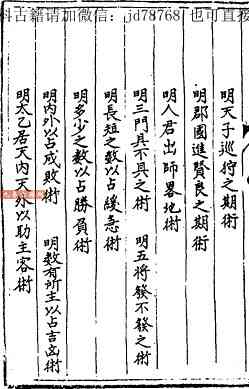 科古籍请加微信：jd78768 也可直接
明天子巡狩之期術
明郡國進賢良之期術
明人君出師畧地術
明三門具不具之術　明五將發不發之術
明長短之數以占緩急術
明多少之數以占勝負術
明內外以占成敗術　明數有所主以占吉凶術
明太乙居天內天外以助主客術